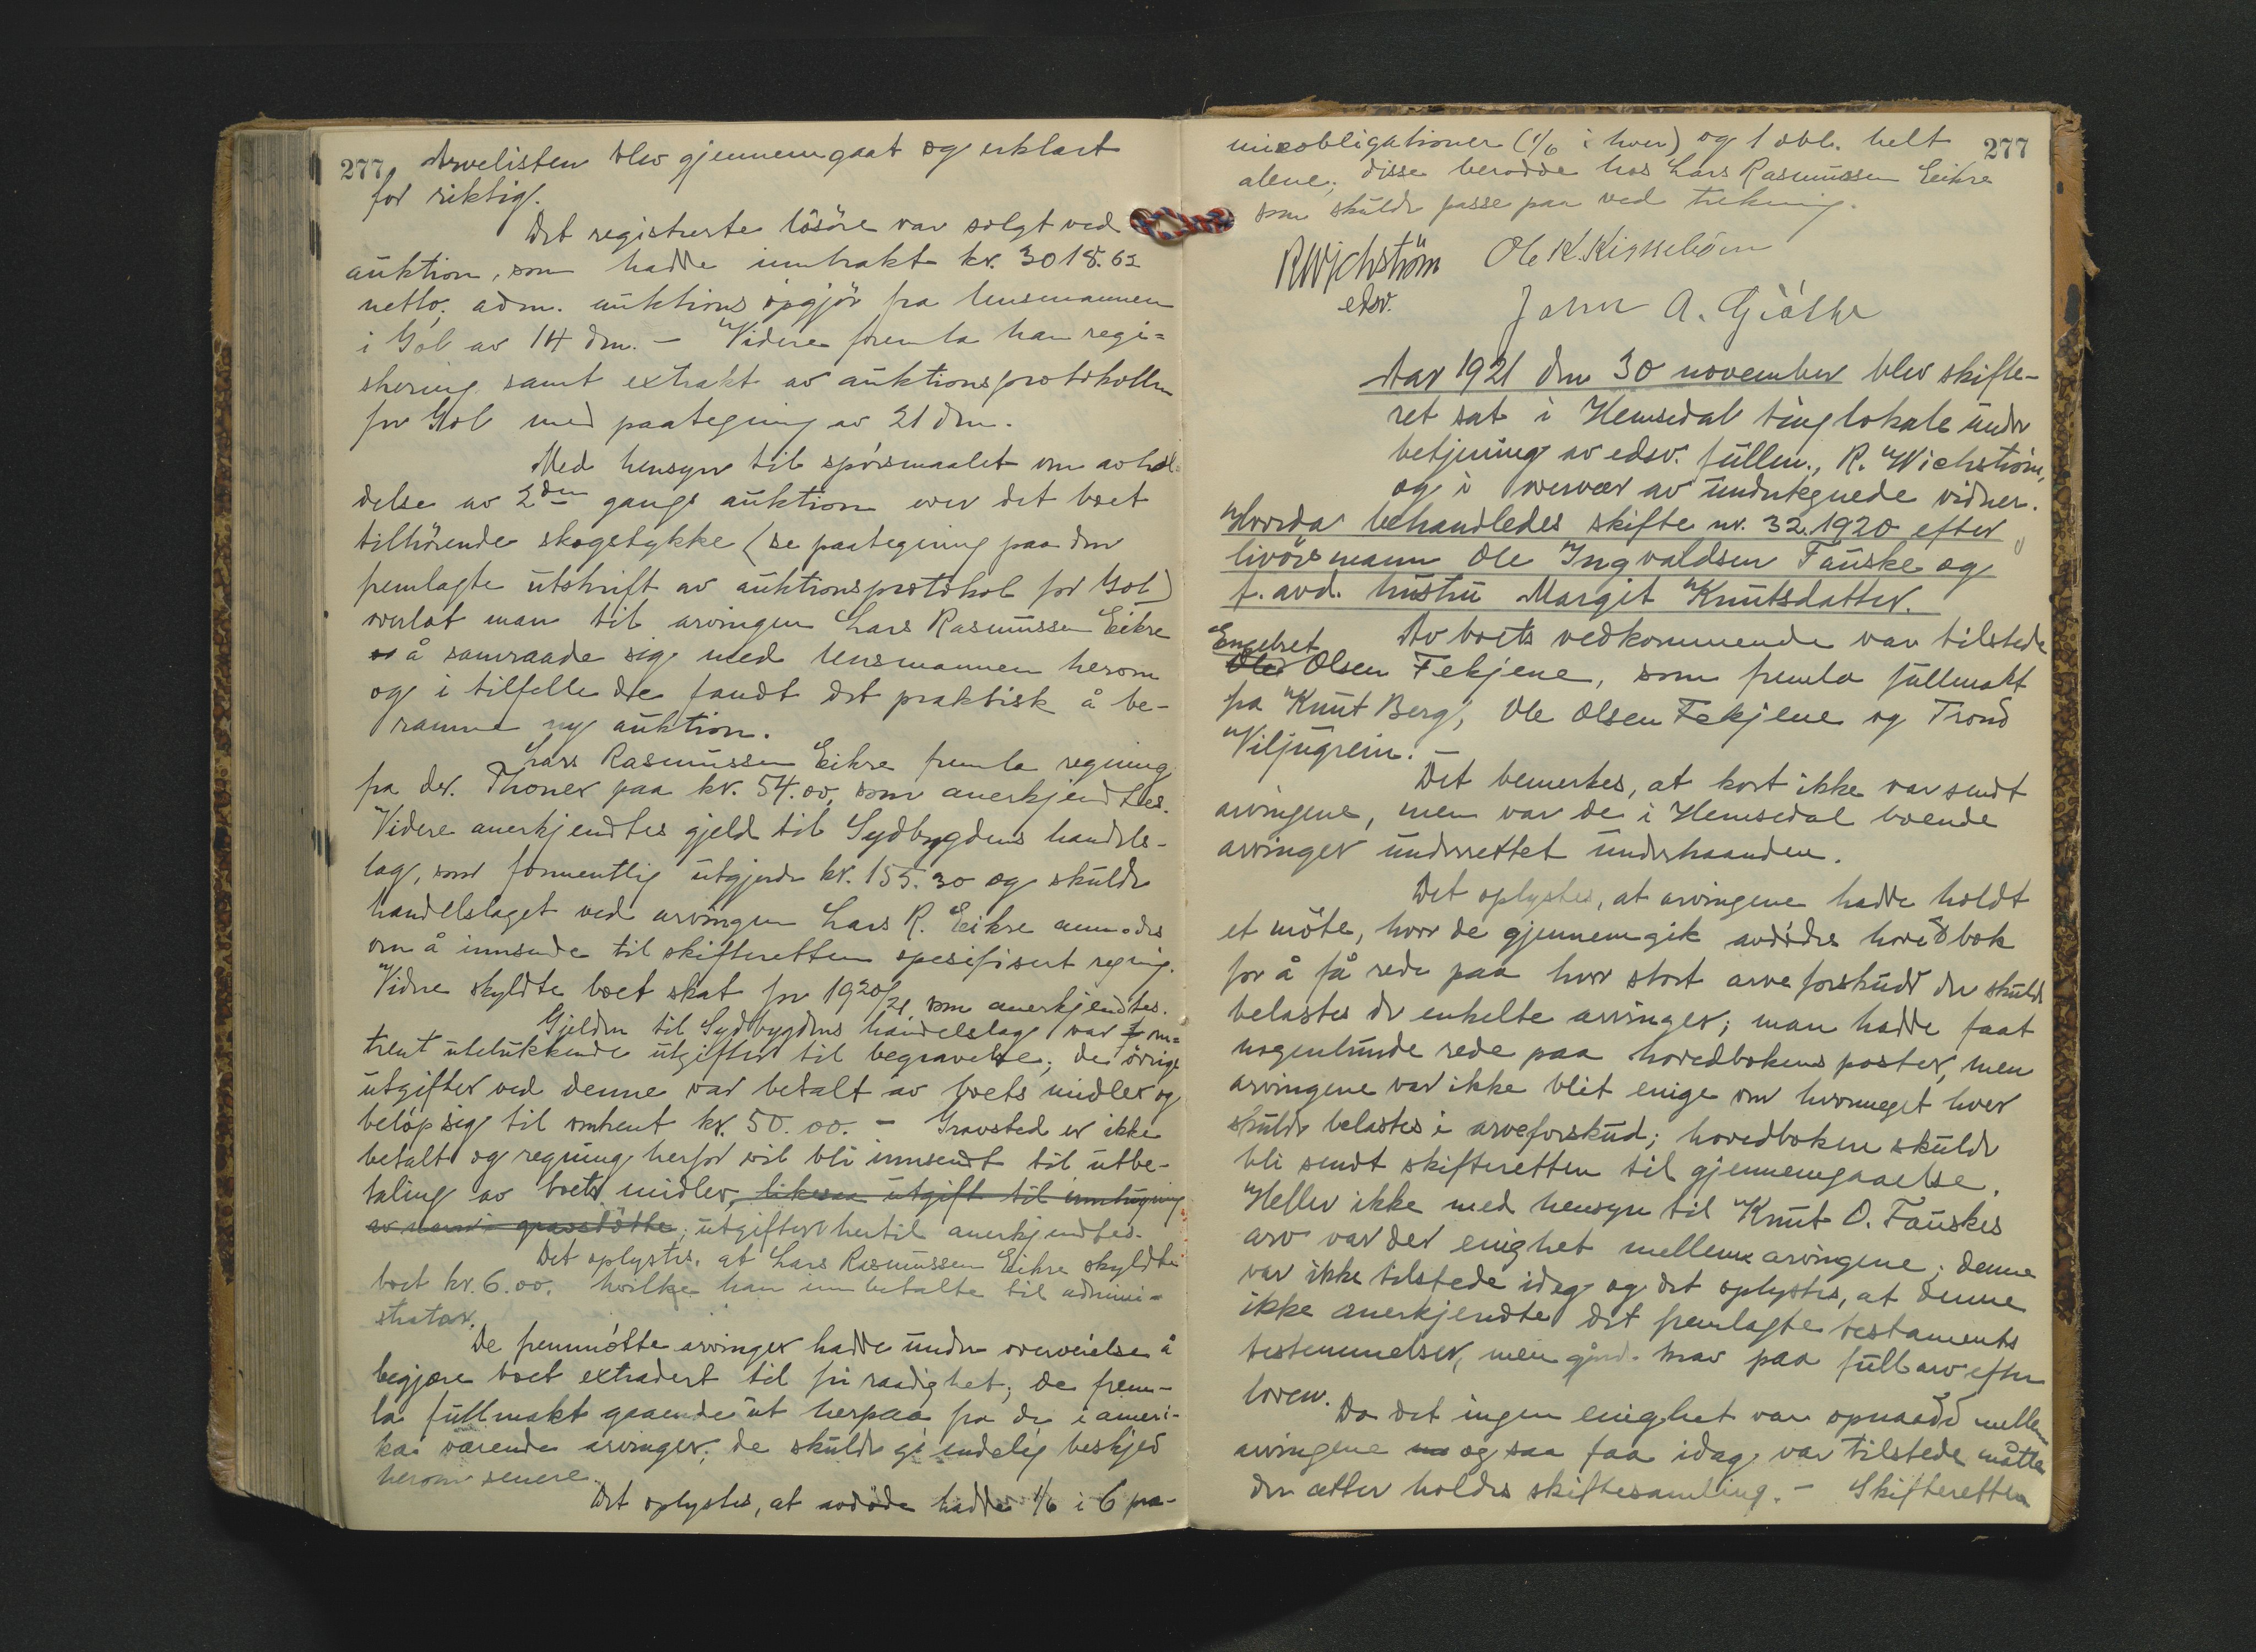 277
Arvelisten blev gjennemgaat og erklært
for riktig.
Det registrerte løsøre var solgt ved
auktion, som hadde inntrakt kr. 3018.62
netto; adm. auktions opgjör fra lensmannen
i Gol av 14 dm. – Videre fremla han regi=
strering samt extrakt av auktionsprotokollen
for Gol med paategning av 21 dm.
Med hensyn til spörsmaalet om avhol-
delse av 2den gangs auktion over det boet
tilhörende skogstykke (se paategning paa den
fremlagte utskrift av auktionsprotokol for Gol)
overlot man til arvingen Lars Rasmussen Eikre
å samraade sig med lensmannen herom
og i tilfelle de fandt det praktisk å be-
ramme ny auktion.
Lars Rasmussen Eikre fremla regning
fra dr. Thoner paa kr. 54.00, som anerkjendtes.
Videre anerkjendtes gjeld til Sydbygdens handels-
lag, som formentlig utgjorde kr. 155.30 og skulde
handelslaget ved arvingen Lars R. Eikre anmodes
om å innsende til skifteretten spesifisert regning.
Videre skyldte boet skat for 1920/21 som anerkjendtes.
Gjelden til Sydbygdens handelslag var om=
trent utelukkende utgifter til begravelse; de övrige
utgifter ved denne var betalt av boets midler og
belöp sig til omtrent kr. 50.00. – Gravsted er ikke
betalt og regning herfor vil bli innsendt til utbe-
taling av boets midler, likesaa utgift til innhugning
av navn i gravstötte; utgifter hertil anerkjendtes.
Det oplystes, at Lars Rasmussen Eikre skyldte
boet kr. 6.00. hvilke han innbetalte til admini=
strator.
De fremmötte arvinger hadde under overveielse å
begjære boet extradert til fri raadighet; de frem-
la fullmakt gaaende ut herpaa fra de i ameri-
ka værende arvinger; de skulde gi endelig beskjed
herom senere.
Det oplystes, at avdöde hadde 1/6 i 6 pre-
277
mieobligationer (1/6 i hver) og 1 obl. helt
alene; disse berodde hos Lars Rasmussen Eikre
som skulde passe paa ved trekning.
RWichström Ole K. Kirkeböen
edsv.
John A.
Aar 1921 den 30 november blev skifte-
ret sat i Hemsedal tinglokale under
betjening av edsv. fullm., R. Wichström,
og i overvær av undertegnede vidner.
Hvorda behandledes skifte nr. 32.1920 efter
livöresmann Ole Ingvaldsen Fauske og
f. avd. hustru Margit Knutsdatter.
Av boets vedkommende var tilstede
Engebret
Ole Olsen Fekjene, som fremla fullmakt
fra Knut Berg, Ole Olsen Fekjene og Trond
Viljugrein. –
Det bemerkes, at kort ikke var sendt
arvingene, men var de i Hemsedal boende
arvinger underrettet underhaanden.
Det oplystes, at arvingene hadde holdt
et möte, hvor de gjennemgik avdödes hovedbok
for å få rede paa hvor stort arveforskudd der skulde
belastes de enkelte arvinger; man hadde faat
nogenlunde rede paa hovedbokens poster, men
arvingene var ikke blit enige om hvormeget hver
skulde belastes i arveforskud; hovedboken skulde
bli sendt skifteretten til gjennemgaaelse.
Heller ikke med hensyn til Knut O. Fauskes
arv var der enighet mellem arvingene; denne
var ikke tilstede idag og det oplystes, at denne
ikke anerkjendte det fremlagte testaments
bestemmelser, men gjord. krav paa full arv efter
loven.
Da det ingen enighet var opnaadd mellem
arvingene og saa faa idag var tilstede måtte
der atter holdes skiftesamling. – Skifteretten